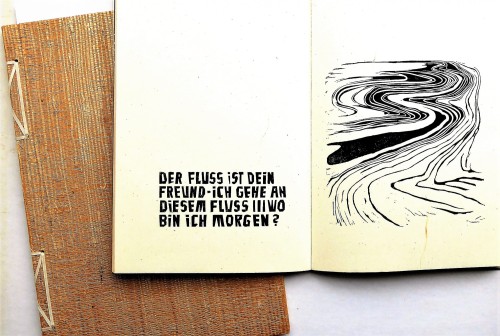 DER FLUSS iST DEiN
FREUND-iCH GEHE AN
DiESEM FLUSS III WO
BiN iCH MORGEN?